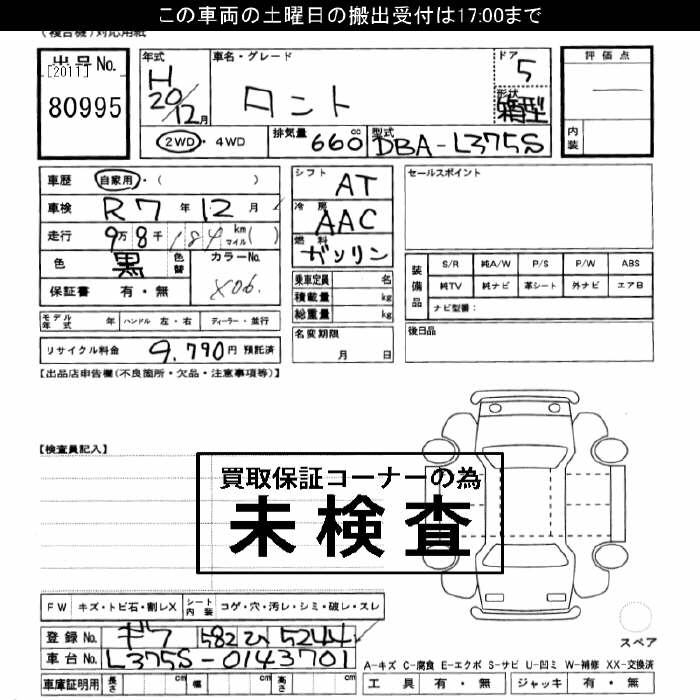 この車両の土曜日の搬出受付は17:00まで
(複合機)対応用紙
出品No.
[2011]
80995
年式
H
20/12月
車名・グレード
タント
ドア
5
形状
箱型
評価点
内装
2WD・4WD
排気量 660cc
型式 DBA-L375S
車歴 自家用・( )
車検 R7年12月
走行 9万8千184km マイル( )
色 黒 色替
カラーNo. X06
保証書 有・無
シフト AT
冷房 AAC
燃料 ガソリン
乗車定員 名
積載量 kg
総重量 kg
名変期限
月 日
セールスポイント
装備品 S/R 純A/W P/S P/W ABS
純TV 純ナビ 革シート 外ナビ エアB
ナビ型番:
後日品
モデル年式 年 ハンドル 左・右 ディーラー・並行
リサイクル料金 9,790円 預託済
【出品店申告欄(不良箇所・欠品・注意事項等)】
【検査員記入】
買取保証コーナーの為
未検査
FW キズ・トビ石・割レX シート内装 コゲ・穴・汚レ・シミ・破レ・スレ
登録No. ギフ 582 ひ 5244
車台No. L375S-0143701
車庫証明用 長さ cm 幅 cm 高さ cm
スペア
A-キズ C-腐食 E-エクボ S-サビ U-凹ミ W-補修 XX-交換済
工具 有・無 ジャッキ 有・無